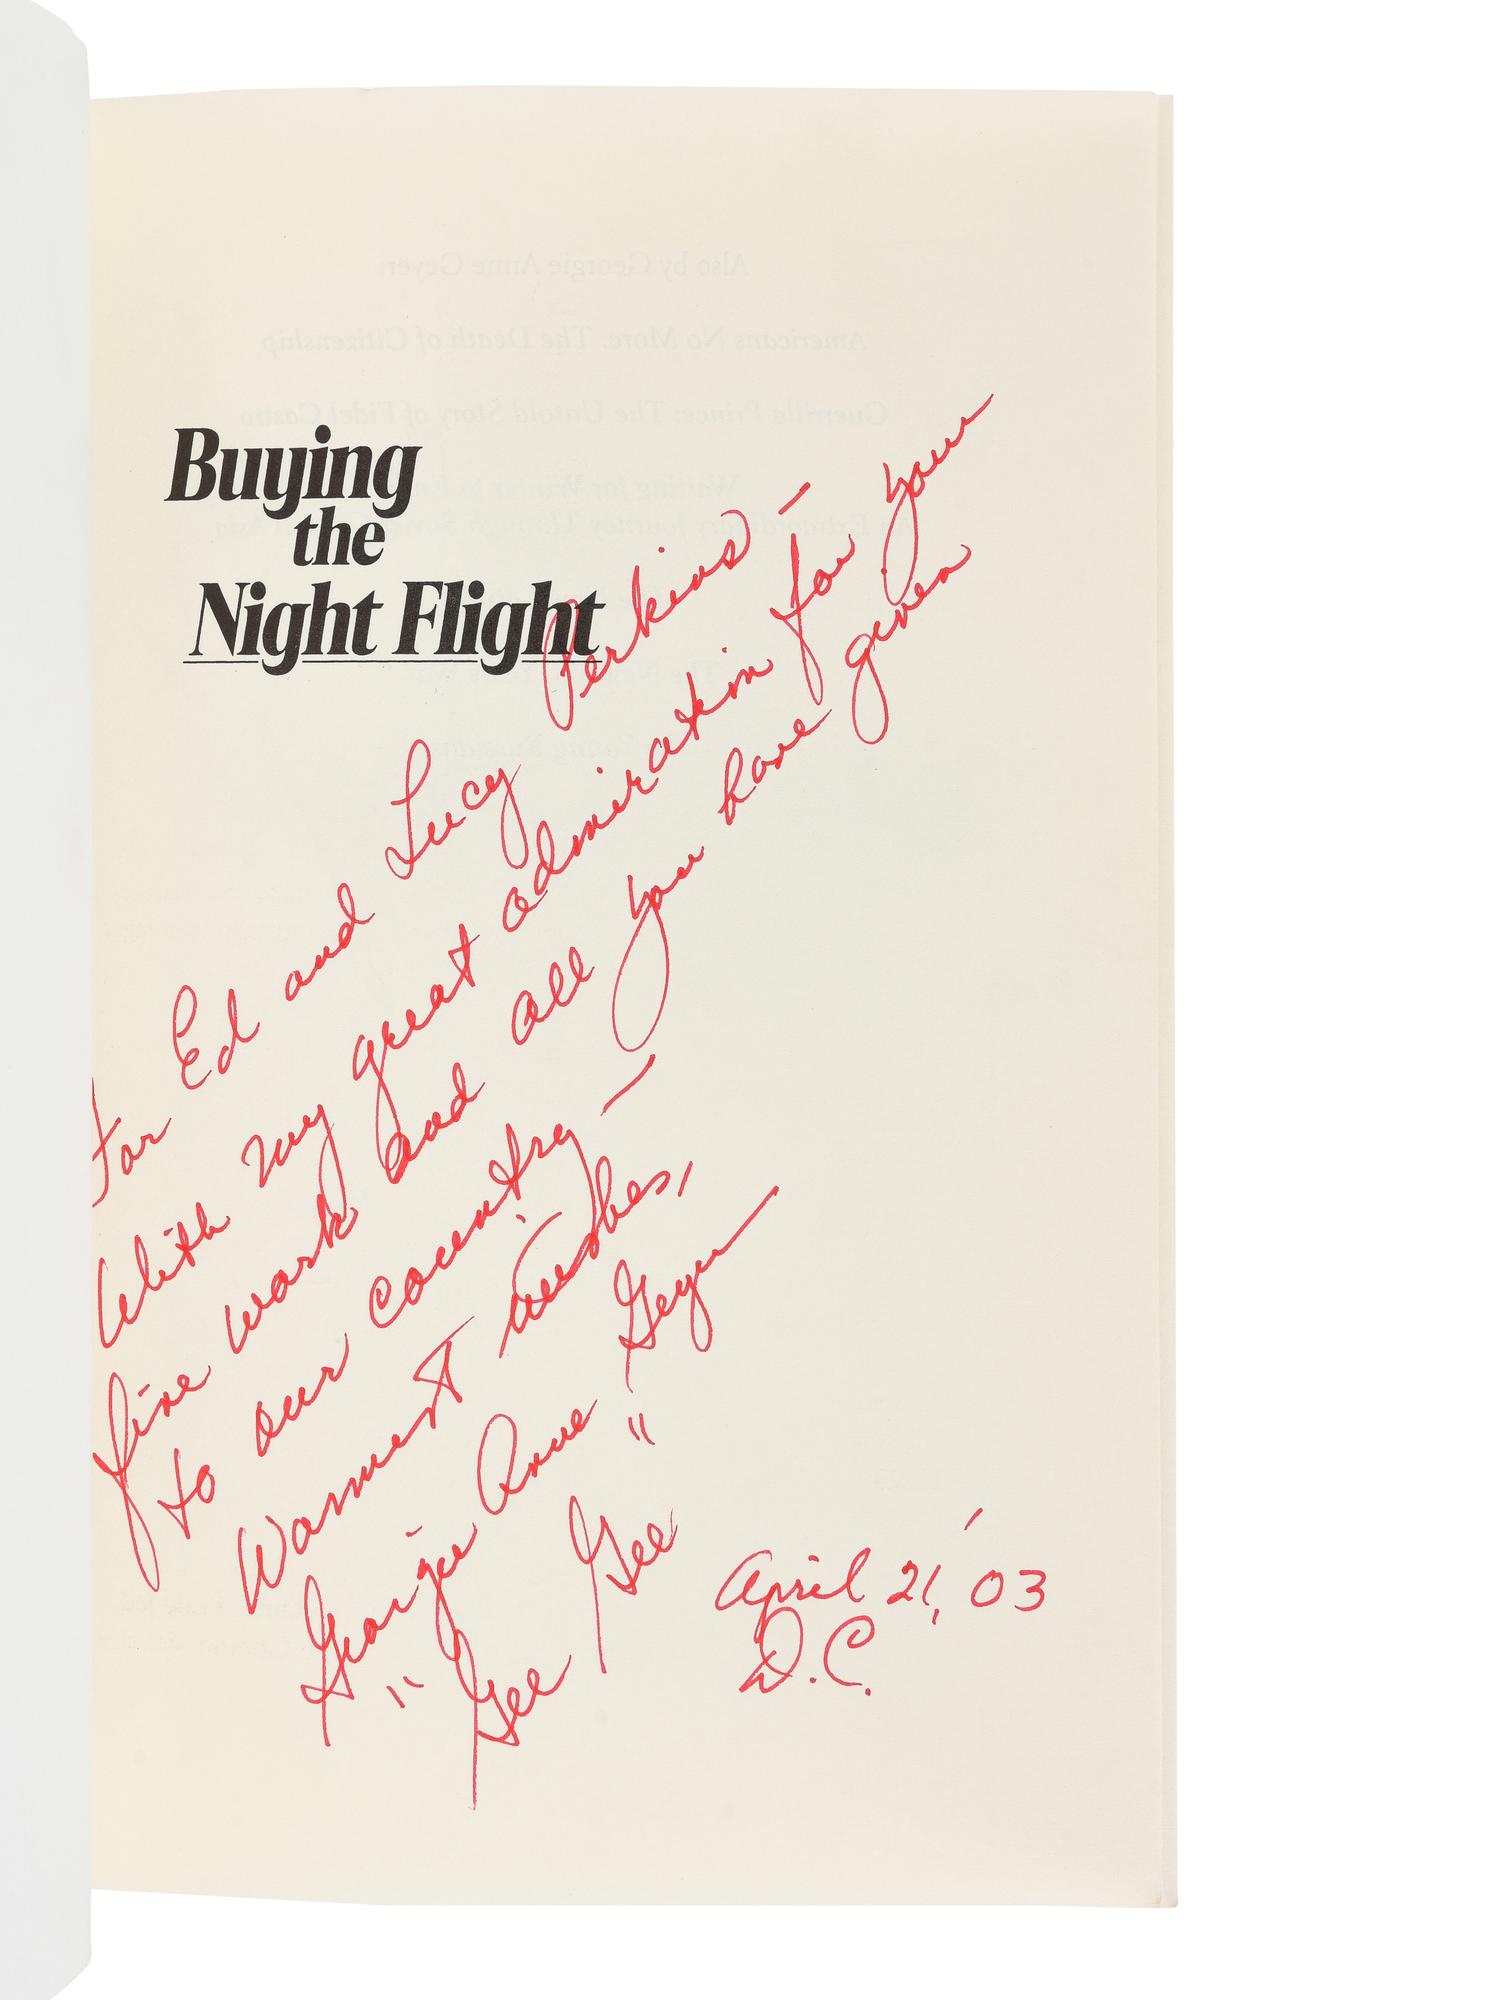 Buying
the
Night Flight
For Ed and Lucy Perkins –
With my great admiration for your
fine work and all you have given
to our country –
Warmest wishes,
Georgie Anne Geyer
"Gee Gee"
April 21, '03
D.C.
Also by Georgie Anne Geyer:
Americans No More: The Death of Citizenship
Guerrilla Prince: The Untold Story of Fidel Castro
Waiting for Winter to
Extraordinary Journey Through
The
Young Russians